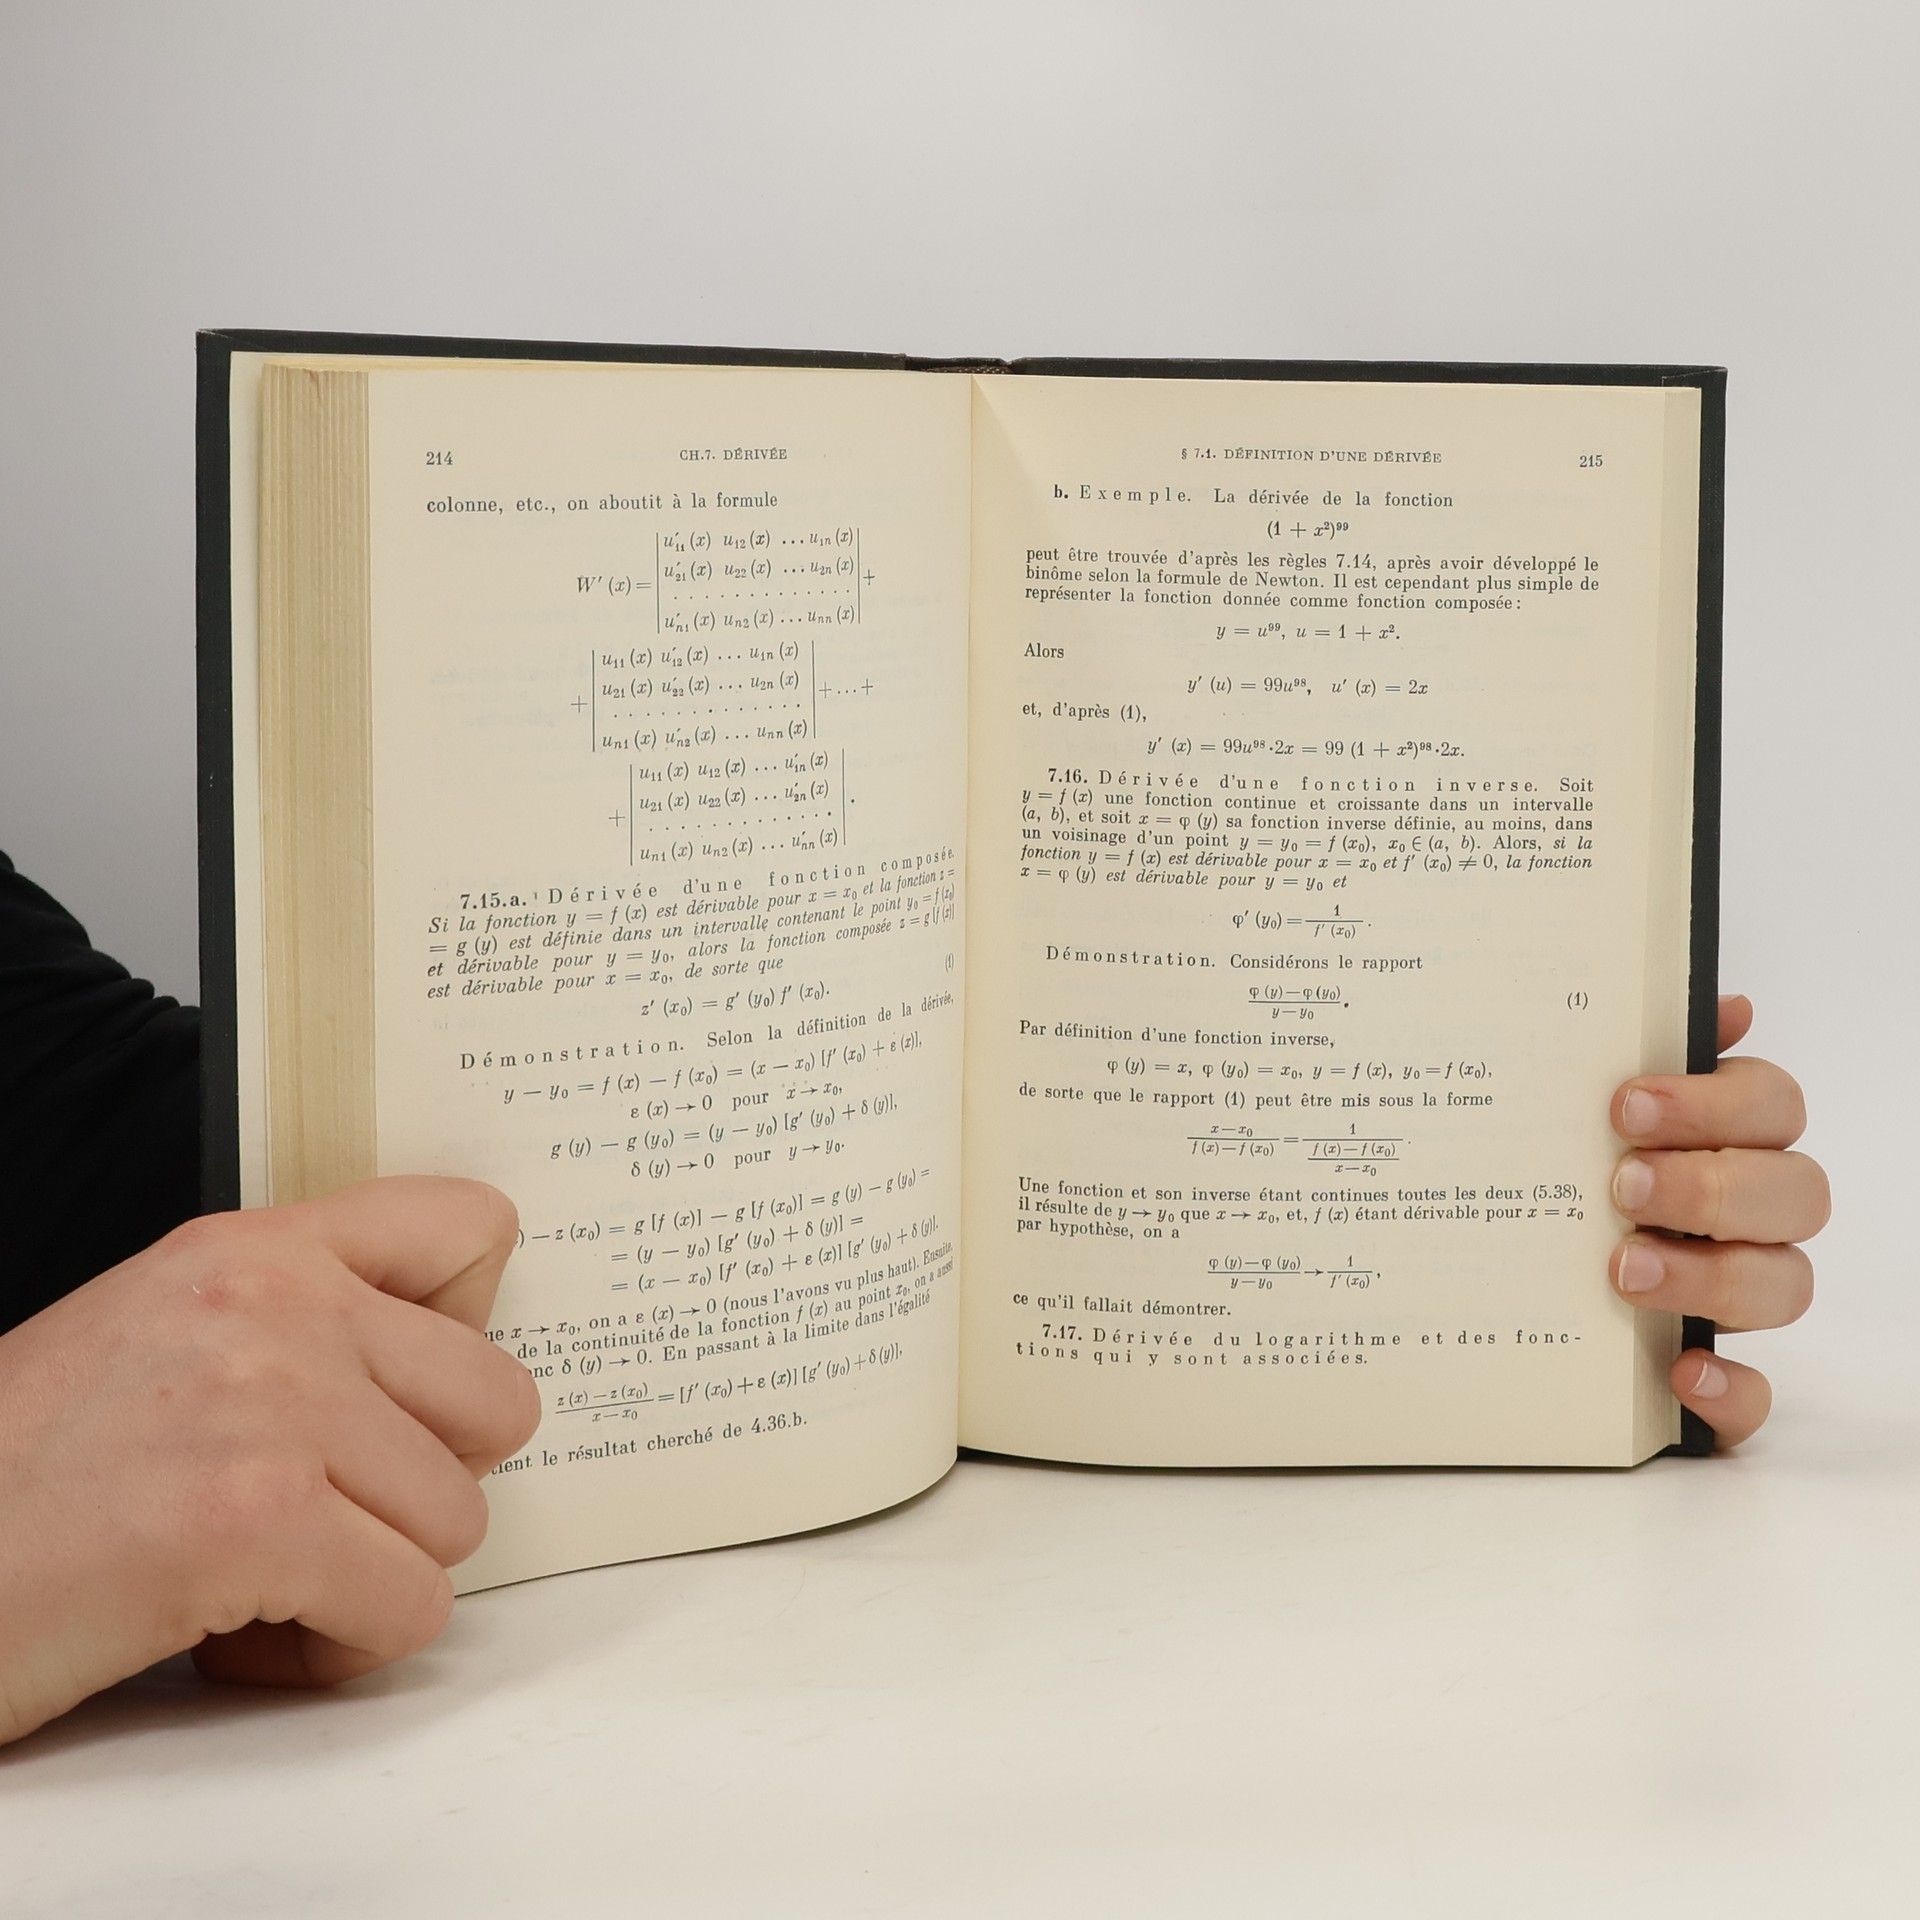 214
CH.7. DÉRIVÉE
colonne, etc., on aboutit à la formule
W′ (x) = | u′₁₁ (x) u₁₂ (x) ... u₁ₙ (x) |
| u′₂₁ (x) u₂₂ (x) ... u₂ₙ (x) | +
| . . . . . . . . . . . . . |
| u′ₙ₁ (x) uₙ₂ (x) ... uₙₙ (x) |
| u₁₁ (x) u′₁₂ (x) ... u₁ₙ (x) |
+ | u₂₁ (x) u′₂₂ (x) ... u₂ₙ (x) | + ... +
| . . . . . . . . . . . . |
| uₙ₁ (x) u′ₙ₂ (x) ... uₙₙ (x) |
| u₁₁ (x) u₁₂ (x) ... u′₁ₙ (x) |
+ | u₂₁ (x) u₂₂ (x) ... u′₂ₙ (x) | .
| . . . . . . . . . . . . |
| uₙ₁ (x) uₙ₂ (x) ... u′ₙₙ (x) |
7.15.a. Dérivée d'une fonction composée.
Si la fonction y = f (x) est dérivable pour x = x₀ et la fonction z =
= g (y) est définie dans un intervalle contenant le point y₀ = f (x₀)
et dérivable pour y = y₀, alors la fonction composée z = g [f (x)]
est dérivable pour x = x₀, de sorte que
z′ (x₀) = g′ (y₀) f′ (x₀). (1)
Démonstration. Selon la définition de la dérivée,
y − y₀ = f (x) − f (x₀) = (x − x₀) [f′ (x₀) + ε (x)],
ε (x) → 0 pour x → x₀,
g (y) − g (y₀) = (y − y₀) [g′ (y₀) + δ (y)],
δ (y) → 0 pour y → y₀.
) − z (x₀) = g [f (x)] − g [f (x₀)] = g (y) − g (y₀) =
= (y − y₀) [g′ (y₀) + δ (y)] =
= (x − x₀) [f′ (x₀) + ε (x)] [g′ (y₀) + δ (y)].
ue x → x₀, on a ε (x) → 0 (nous l'avons vu plus haut). Ensuite,
de la continuité de la fonction f (x) au point x₀, on a aussi
nc δ (y) → 0. En passant à la limite dans l'égalité
z (x) − z (x₀) / x − x₀ = [f′ (x₀) + ε (x)] [g′ (y₀) + δ (y)],
tient le résultat cherché de 4.36.b.
§ 7.1. DÉFINITION D'UNE DÉRIVÉE
215
b. Exemple. La dérivée de la fonction
(1 + x²)⁹⁹
peut être trouvée d'après les règles 7.14, après avoir développé le
binôme selon la formule de Newton. Il est cependant plus simple de
représenter la fonction donnée comme fonction composée:
y = u⁹⁹, u = 1 + x².
Alors
y′ (u) = 99u⁹⁸, u′ (x) = 2x
et, d'après (1),
y′ (x) = 99u⁹⁸·2x = 99 (1 + x²)⁹⁸·2x.
7.16. Dérivée d'une fonction inverse. Soit
y = f (x) une fonction continue et croissante dans un intervalle
(a, b), et soit x = φ (y) sa fonction inverse définie, au moins, dans
un voisinage d'un point y = y₀ = f (x₀), x₀ ∈ (a, b). Alors, si la
fonction y = f (x) est dérivable pour x = x₀ et f′ (x₀) ≠ 0, la fonction
x = φ (y) est dérivable pour y = y₀ et
φ′ (y₀) = 1 / f′ (x₀) .
Démonstration. Considérons le rapport
φ (y) − φ (y₀) / y − y₀ . (1)
Par définition d'une fonction inverse,
φ (y) = x, φ (y₀) = x₀, y = f (x), y₀ = f (x₀),
de sorte que le rapport (1) peut être mis sous la forme
x − x₀ / f (x) − f (x₀) = 1 / (f (x) − f (x₀) / x − x₀) .
Une fonction et son inverse étant continues toutes les deux (5.38),
il résulte de y → y₀ que x → x₀, et, f (x) étant dérivable pour x = x₀
par hypothèse, on a
φ (y) − φ (y₀) / y − y₀ → 1 / f′ (x₀) ,
ce qu'il fallait démontrer.
7.17. Dérivée du logarithme et des fonc-
tions qui y sont associées.